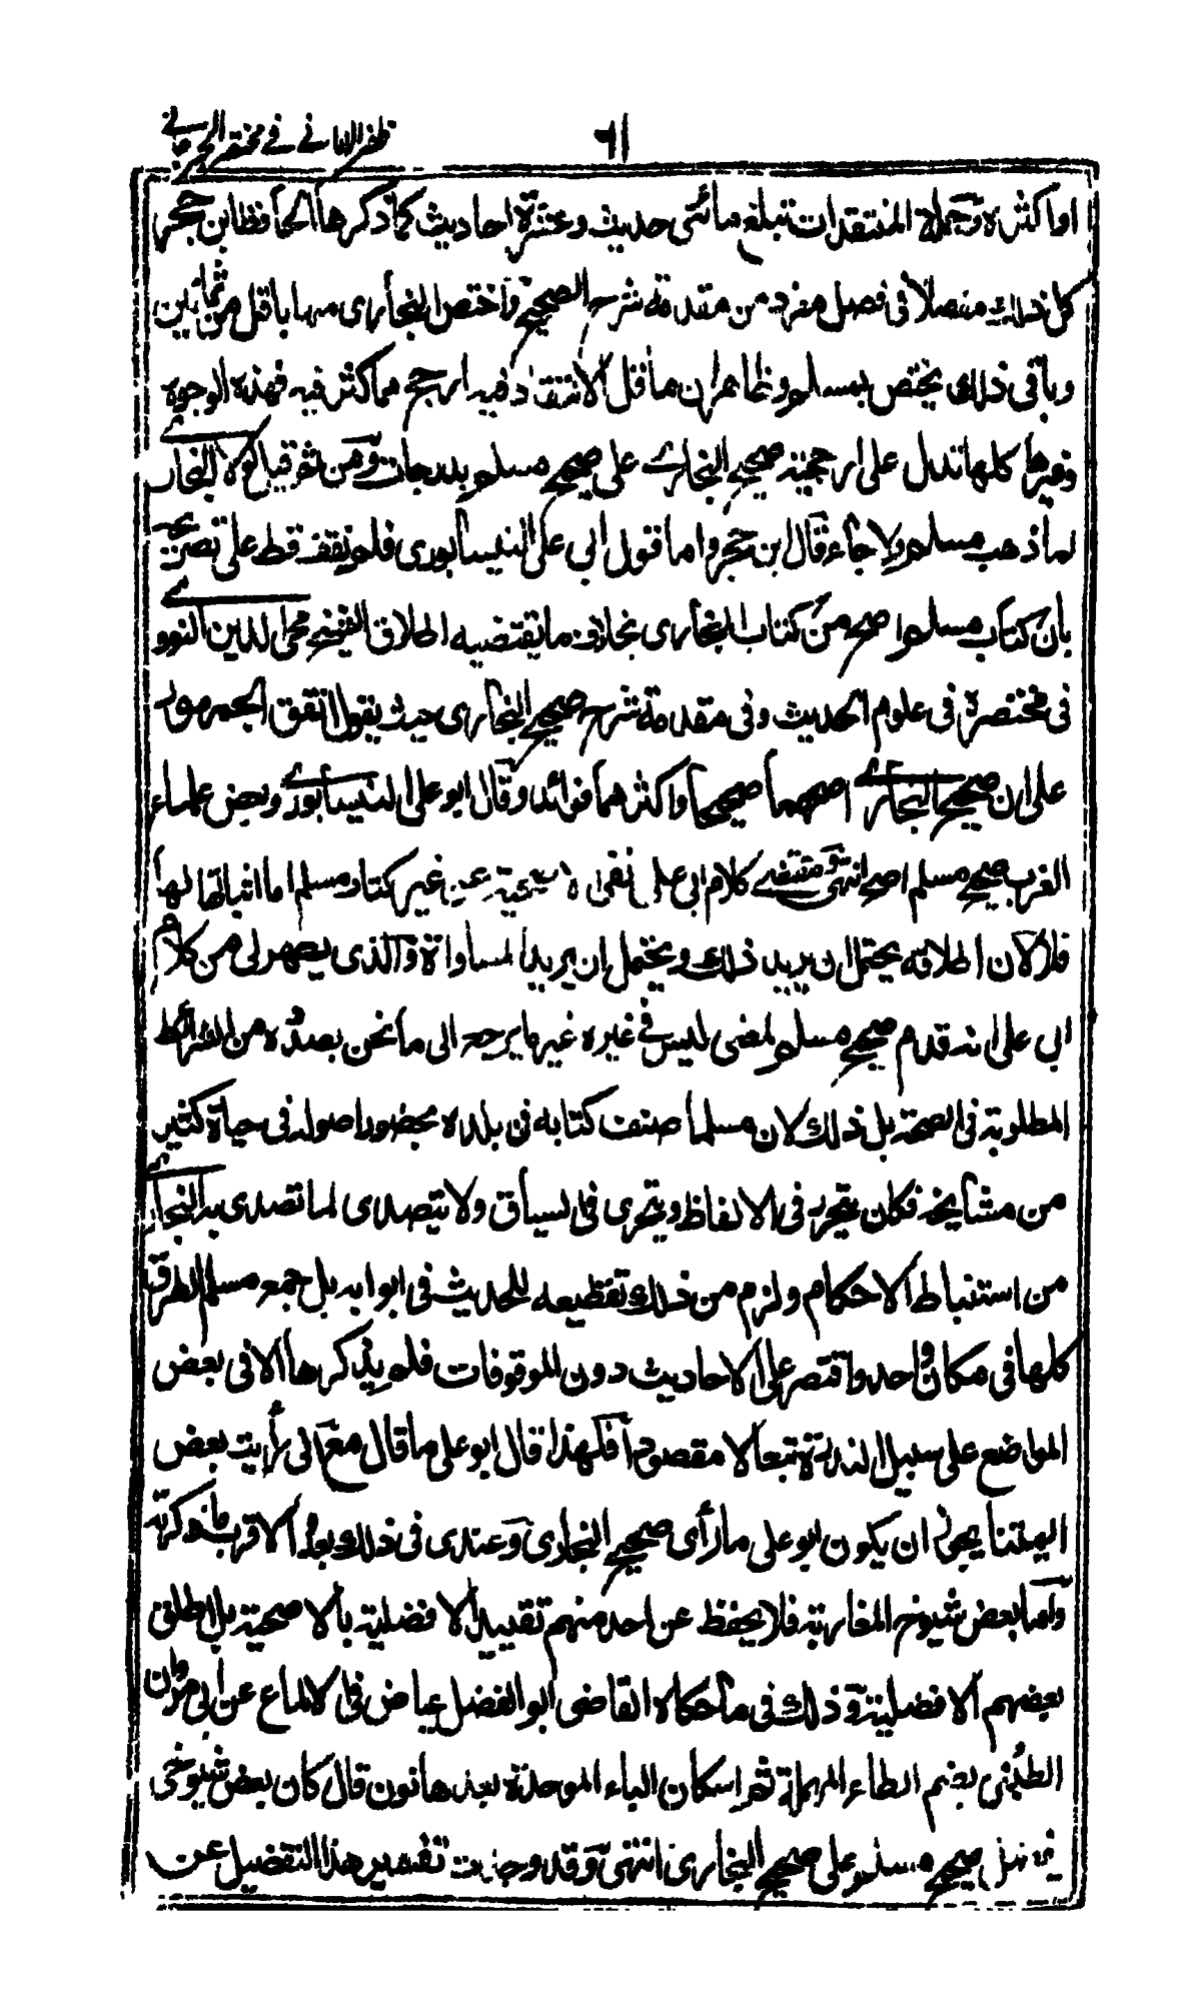 ظفر الاماني في مختصر الجرجاني
٦١
او اكثره وجملة المنتقدات تبلغ مائتى حديث وعشرة احاديث كما ذكرها الحافظ ابن حجر
كل ذلك مفصلا فى فصل مفرد من مقدمة شرح الصحيح واختص البخارى منها باقل من ثمانين
وباقى ذلك يختص بمسلم وظاهر ان ما قل الانتقاد فيه ارجح مما كثر فيه فهذه الوجوه
وغيرها كلها تدل على ارجحية صحيح البخارى على صحيح مسلم بدرجات ومن ثم قيل لولا البخارى
لما ذهب مسلم ولا جاء وقال ابن حجر واما قول ابي على النيسابورى فلم نقف قط على تصريحه
بان كتاب مسلم اصح من كتاب البخارى بخلاف ما يقتضيه اطلاق الشيخ محى الدين النووى
فى مختصره فى علوم الحديث وفى مقدمة شرح صحيح البخارى حيث يقول اتفق الجمهور
على ان صحيح البخارى اصحهما صحيحا واكثرهما فوائد وقال ابو على النيسابورى وبعض علماء
الغرب صحيح مسلم اصح انتهى ومقتضى كلام ابى على نفى الاصحية عن غير كتاب مسلم اما اثباتها لها
فلا لان اطلاقه يحتمل ان يريد ذلك ويحتمل ان يريد المساواة والذى يظهر لى من كلام
ابي على انه قدم صحيح مسلم لمعنى ليس فى غيره غير ما يرجع الى ما نحن بصدده من الشرائط
المطلوبة فى الصحة بل ذلك لان مسلما صنف كتابه فى بلده بحضور اصوله فى حياة كثير
من مشائخه فكان يتحرز فى الالفاظ ويتحرى فى السياق ولا يتصدى لما تصدى به البخارى
من استنباط الاحكام ولزم من ذلك تقطيعه للحديث فى ابوابه بل جمع مسلم الطرق
كلها فى مكان واحد واقتصر على الاحاديث دون الموقوفات فلم يذكرها الا فى بعض
المواضع على سبيل الندرة تبعا لا مقصودا فلهذا قال ابو على ما قال مع انى رأيت بعض
ائمتنا يجوز ان يكون ابو على ما رأى صحيح البخارى وعندى فى ذلك بعد والاقرب ما ذكرته
واما بعض شيوخ المغاربة فلا يحفظ عن احد منهم تقييد الافضلية بالاصحية بل اطلق
بعضهم الافضلية وذلك فى ما حكاه القاضى ابو الفضل عياض فى الالماع عن ابى مروان
الطبنى بضم الطاء المهملة ثم اسكان الباء الموحدة بعدها نون قال كان بعض شيوخى
يفضل صحيح مسلم على صحيح البخارى انتهى وقد وجدت تفسير هذا التفضيل عن